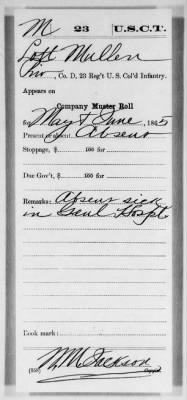 M 23 U.S.C.T.
Loft Mullen
Pvt, Co. D, 23 Reg't U. S. Col'd Infantry.
Appears on
Company Muster Roll
for May & June, 1865
Present or absent Absent
Stoppage, $ 100 for
Due Gov't, $ 100 for
Remarks: Absent sick
in Genl Hospt
Book mark:
W M Jackson
(358) Copyist.